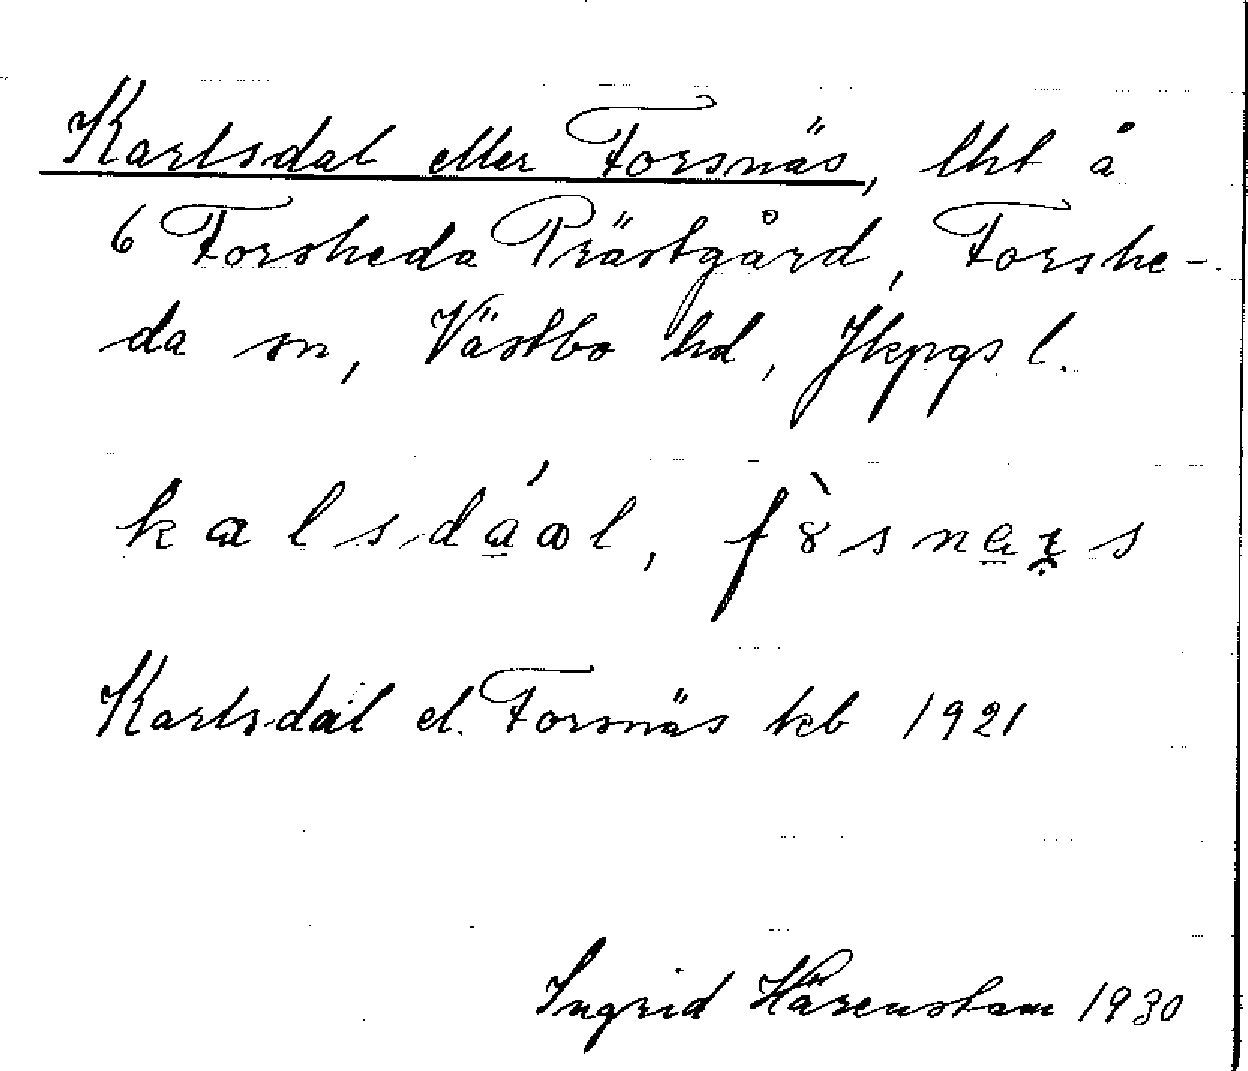 Karlsdal eller Forsnäs, lht å
6 Forsheda Prästgård, Forshe-
da sn, Västbo hd, Jkpgs l.
Karlsdal el. Forsnäs kb 1921
Ingrid Härenstam 1930